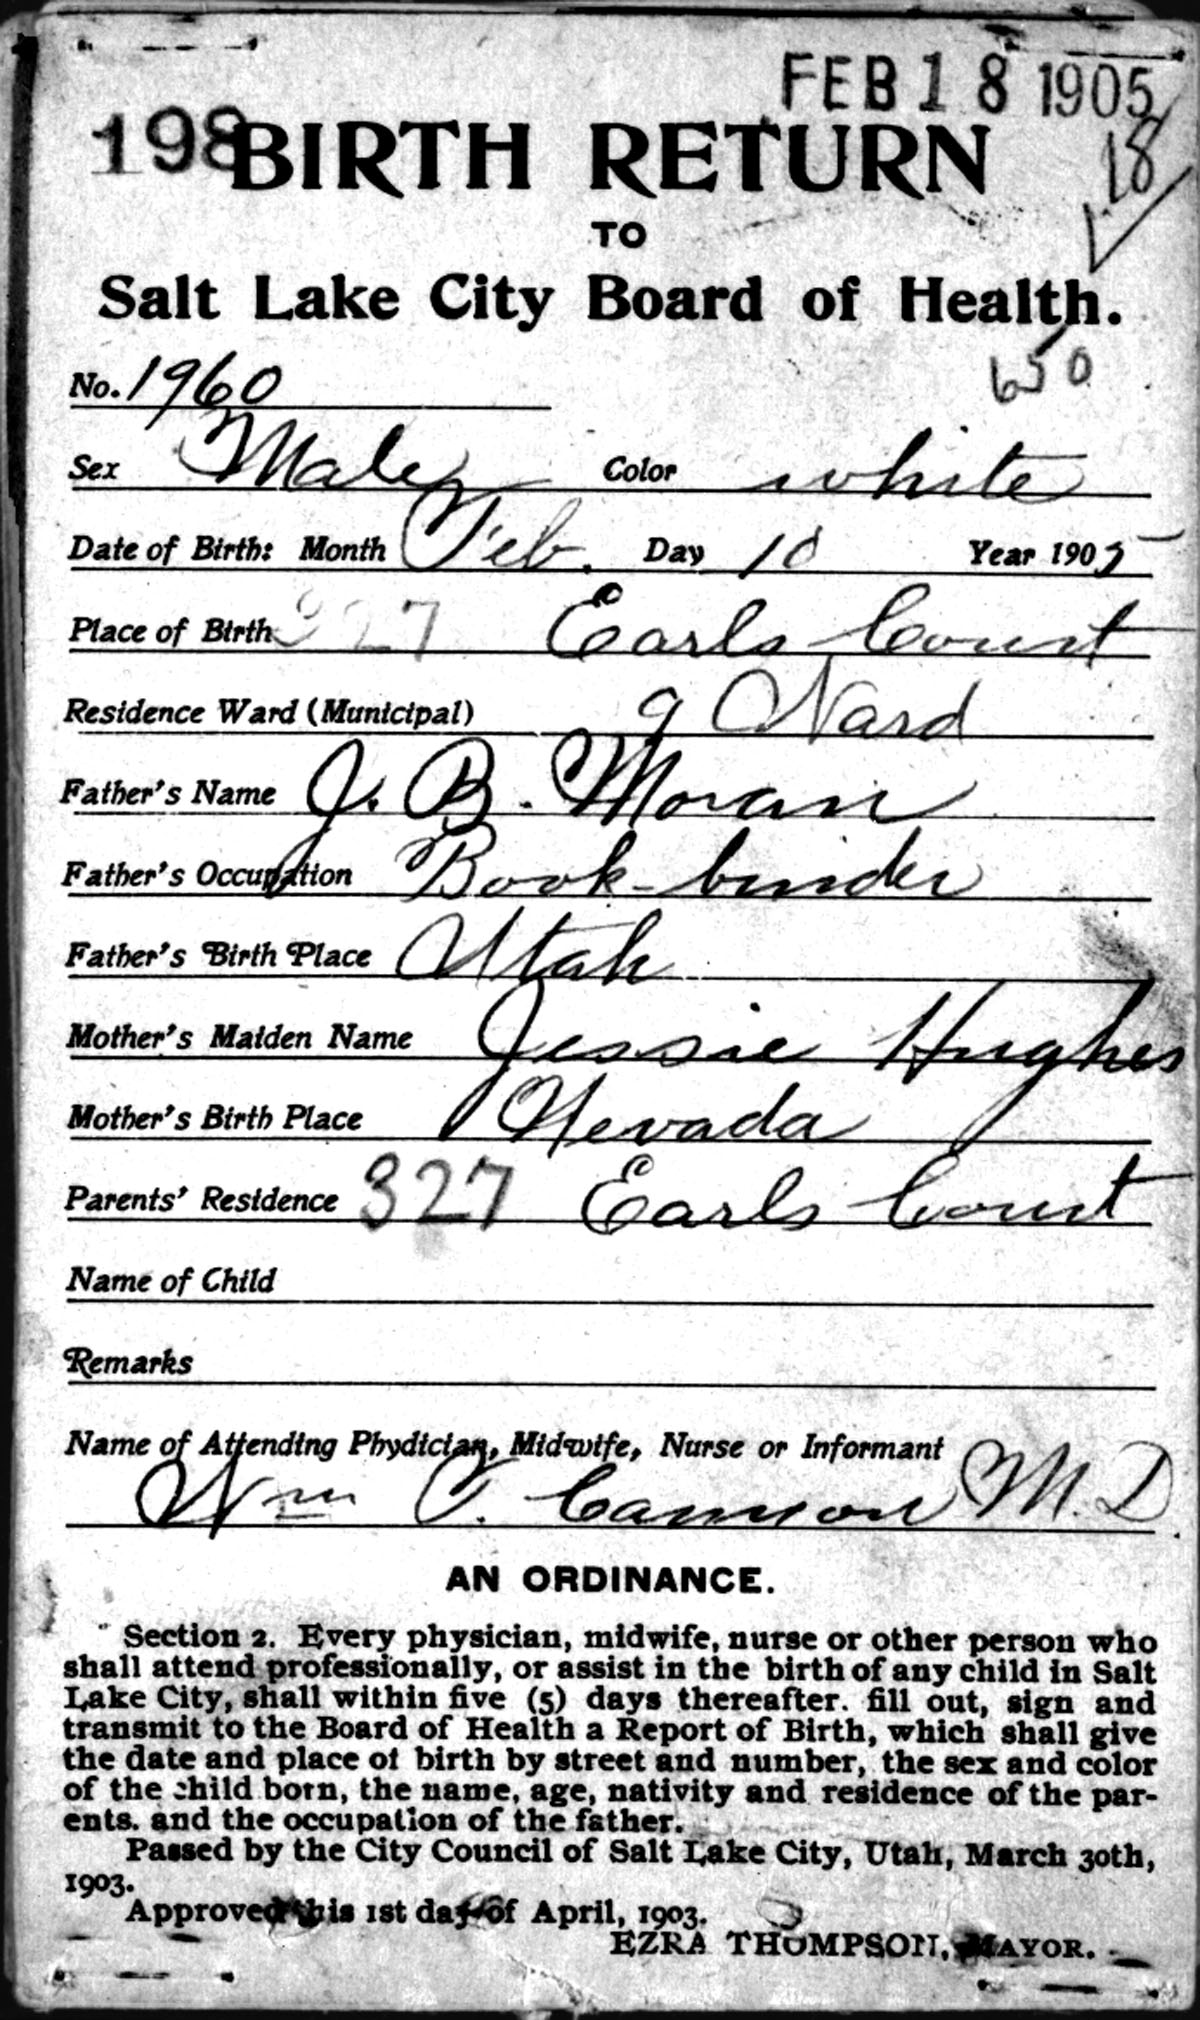 FEB 18 1905
198
18
BIRTH RETURN
TO
Salt Lake City Board of Health.
650
No. 1960
Sex Male Color white
Date of Birth: Month Feb. Day 10 Year 1905
Place of Birth 327 Earls Court
Residence Ward (Municipal) 9 Ward
Father's Name J. B. Moran
Father's Occupation Book-binder
Father's Birth Place Utah
Mother's Maiden Name Jessie Hughes
Mother's Birth Place Nevada
Parents' Residence 327 Earls Court
Name of Child
Remarks
Name of Attending Phydician, Midwife, Nurse or Informant
Wm T. Cannon M.D.
AN ORDINANCE.
Section 2. Every physician, midwife, nurse or other person who
shall attend professionally, or assist in the birth of any child in Salt
Lake City, shall within five (5) days thereafter. fill out, sign and
transmit to the Board of Health a Report of Birth, which shall give
the date and place of birth by street and number, the sex and color
of the child born, the name, age, nativity and residence of the par-
ents. and the occupation of the father.
Passed by the City Council of Salt Lake City, Utah, March 30th,
1903.
Approved this 1st day of April, 1903.
EZRA THOMPSON, MAYOR.